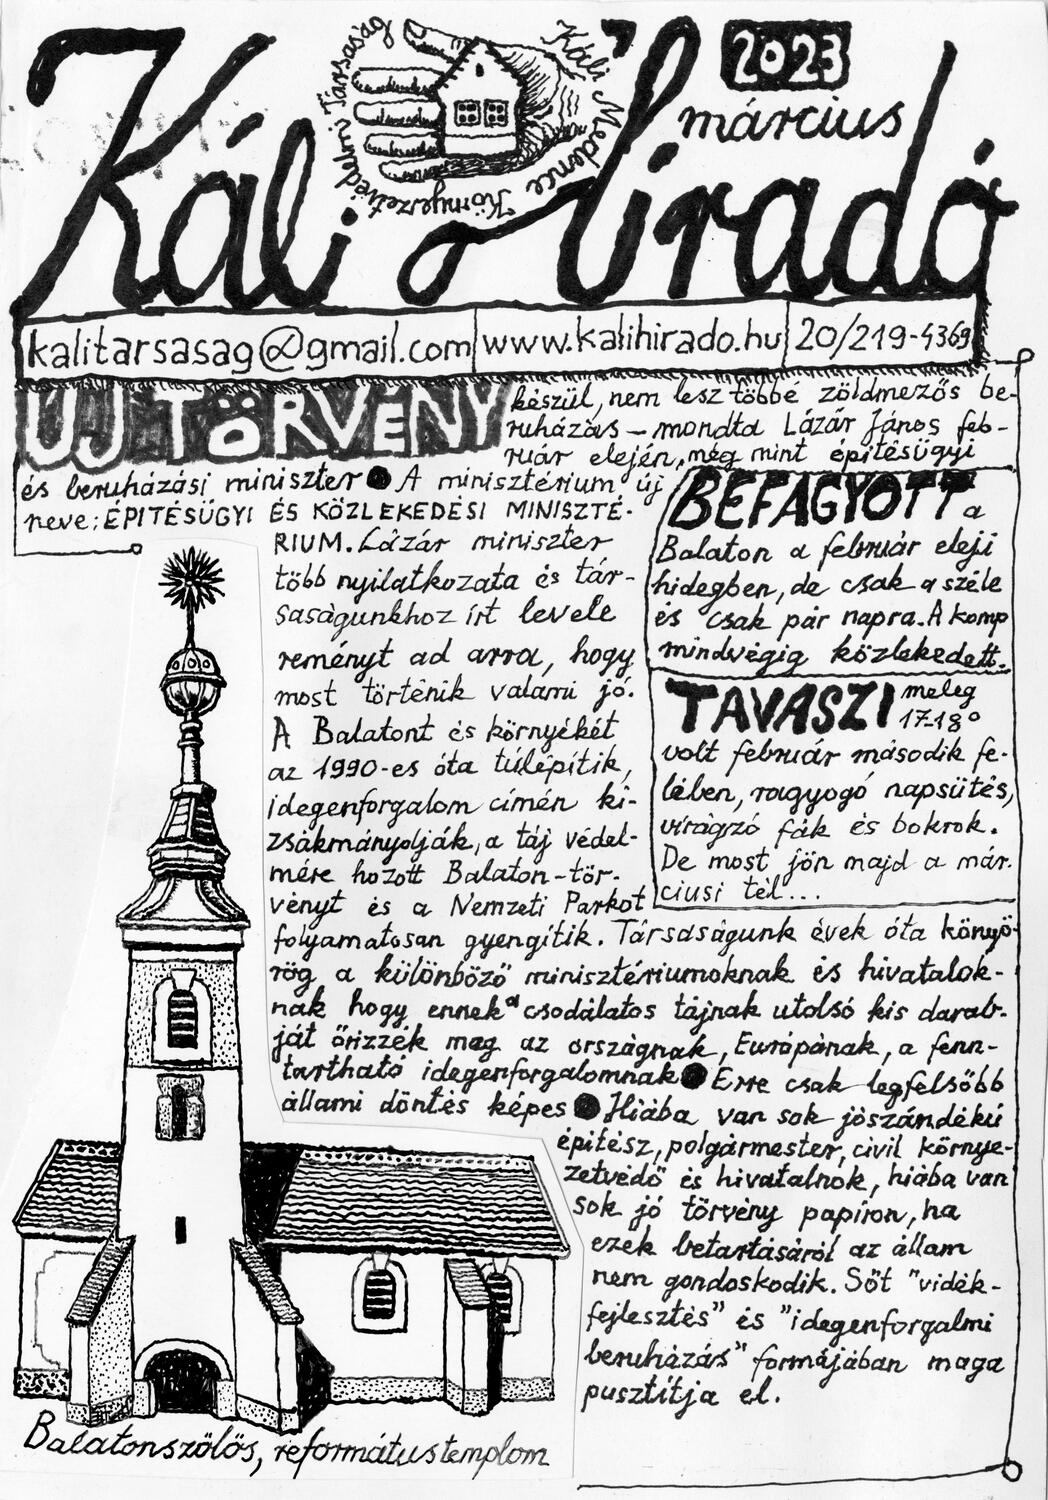 Káli Híradó
Káli Medence Környezetvédelmi Társaság
2023
március
kalitarsasag@gmail.com www.kalihirado.hu 20/219-4369
ÚJ TÖRVÉNY készül, nem lesz többé zöldmezős be-
ruházás – mondta Lázár János feb-
ruár elején, még mint építésügyi
és beruházási miniszter ● A minisztérium új
neve: ÉPITÉSÜGYI ÉS KÖZLEKEDÉSI MINISZTÉ-
RIUM. Lázár miniszter
több nyilatkozata és tár-
saságunkhoz írt levele
reményt ad arra, hogy
most történik valami jó.
A Balatont és környékét
az 1990-es óta túlépítik,
idegenforgalom címén ki-
zsákmányolják, a táj védel-
mére hozott Balaton-tör-
vényt és a Nemzeti Parkot
folyamatosan gyengítik. Társaságunk évek óta könyö-
rög a különböző minisztériumoknak és hivatalok-
nak hogy ennek a csodálatos tájnak utolsó kis darab-
ját őrizzék meg az országnak, Európának, a fenn-
tartható idegenforgalomnak ● Erre csak legfelsőbb
állami döntés képes ● Hiába van sok jószándékú
építész, polgármester, civil környe-
zetvédő és hivatalnok, hiába van
sok jó törvény papíron, ha
ezek betartásáról az állam
nem gondoskodik. Sőt "vidék-
fejlesztés" és "idegenforgalmi
beruházás" formájában maga
pusztítja el.
BEFAGYOTT a
Balaton a február eleji
hidegben, de csak a széle
és csak pár napra. A komp
mindvégig közlekedett.
TAVASZI meleg
17-18°
volt február második fe-
lében, ragyogó napsütés,
virágzó fák és bokrok.
De most jön majd a már-
ciusi tél...
Balatonszőlős, református templom